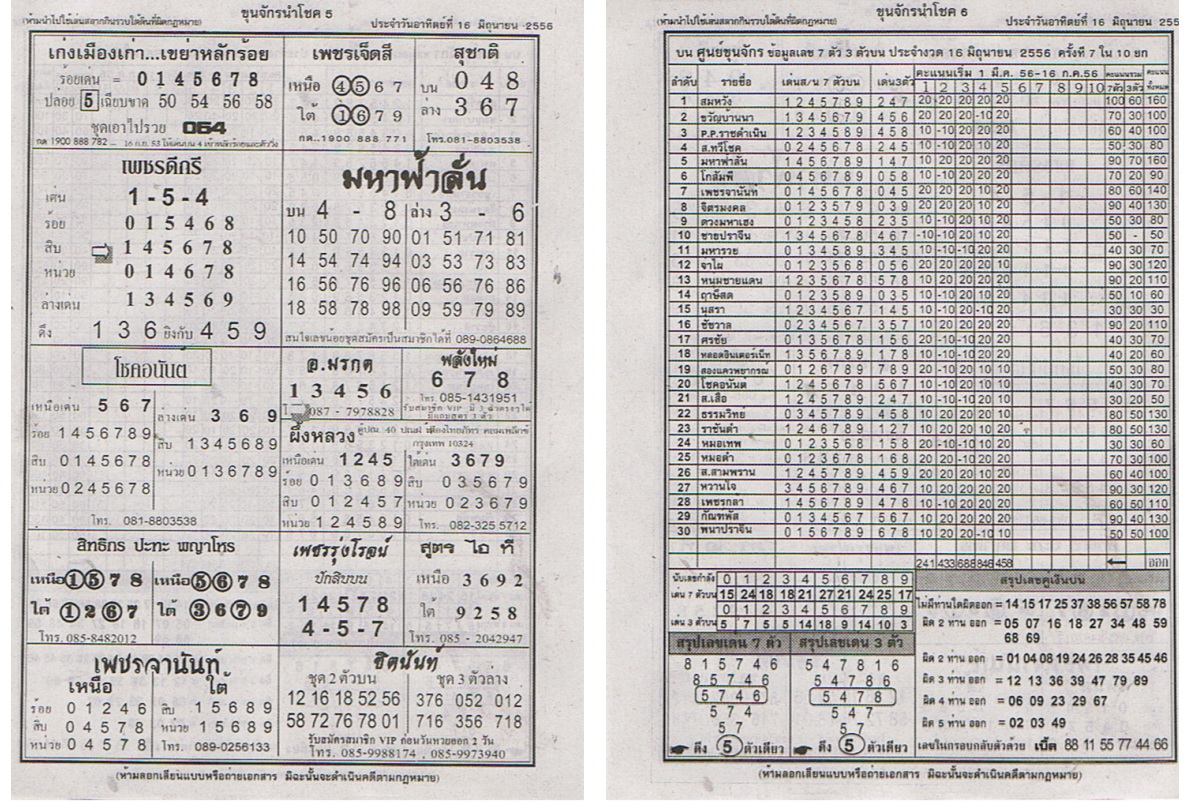 ขุนจักรนำโชค 5
(ห้ามนำไปใช้เล่นสลากกินรวบใดอื่นที่ผิดกฎหมาย)
ประจำวันอาทิตย์ที่ 16 มิถุนายน -2556
เก่งเมืองเก่า...เขย่าหลักร้อย
ร้อยเด่น = 0 1 4 5 6 7 8
ปล่อย 5 เฉียบขาด 50 54 56 58
ชุดเอาไปรวย 064
กด 1900 888 782
เพชรเจ็ดสี
เหนือ 4 5 6 7
ใต้ 1 6 7 9
กด..1900 888 771
สุชาติ
บน 0 4 8
ล่าง 3 6 7
โทร.085-8803538
เพชรดีกรี
เด่น 1 - 5 - 4
ร้อย 0 1 5 4 6 8
สิบ 1 4 5 6 7 8
หน่วย 0 1 4 6 7 8
ล่างเด่น 1 3 4 5 6 9
ดึง 1 3 6 ยิงกับ 4 5 9
มหาฟ้าลั่น
บน 4 - 8 ล่าง 3 - 6
10 50 70 90 01 51 71 81
14 54 74 94 03 53 73 83
16 56 76 96 06 56 76 86
18 58 78 98 09 59 79 89
สนใจเลขน้อยชุดสมัครเป็นสมาชิกได้ที่ 089-0864688
โชคอนันต์
เหนือเด่น 5 6 7
ร้อย 1 4 5 6 7 8 9
สิบ 0 1 4 5 6 7 8
หน่วย 0 2 4 5 6 7 8
ล่างเด่น 3 6 9
สิบ 1 3 4 5 6 8 9
หน่วย 0 1 3 6 7 8 9
โทร. 081-8803538
อ.มรกต
1 3 4 5 6
087 - 7978828
พลังใหม่
6 7 8
โทร. 085-1431951
ผึ้งหลวง
กรุงเทพ 10324
เหนือเด่น 1 2 4 5 ใต้เด่น 3 6 7 9
ร้อย 0 1 3 6 8 9 สิบ 0 3 5 6 7 9
สิบ 0 1 2 4 5 7 หน่วย 0 2 3 6 7 9
หน่วย 1 2 4 5 8 9 โทร. 082-325 5712
สิทธิกร ปะทะ พญาโหร
เหนือ 1 5 7 8 เหนือ 5 6 7 8
ใต้ 1 2 6 7 ใต้ 3 6 7 9
โทร. 085-8482012
เพชรรุ่งโรจน์
ปักสิบบน
1 4 5 7 8
4 - 5 - 7
สูตร ไอ ที
เหนือ 3 6 9 2
ใต้ 9 2 5 8
โทร. 085 - 2042947
เพชรจานันท์
เหนือ ใต้
ร้อย 0 1 2 4 6 สิบ 1 5 6 8 9
สิบ 0 4 5 7 8 หน่วย 1 5 6 8 9
หน่วย 0 4 5 7 8 โทร. 089-0256133
ชิตนันท์
ชุด 2 ตัวบน ชุด 3 ตัวล่าง
12 16 18 52 56 376 052 012
58 72 76 78 01 716 356 718
รับสมัครสมาชิก VIP ก่อนวันหวยออก 2 วัน
โทร. 085-9988174 , 085-9973940
(ห้ามลอกเลียนแบบหรือถ่ายเอกสาร มิฉะนั้นจะดำเนินคดีตามกฎหมาย)
ขุนจักรนำโชค 6
(ห้ามนำไปใช้เล่นสลากกินรวบใดอื่นที่ผิดกฎหมาย)
ประจำวันอาทิตย์ที่ 16 มิถุนายน 255
บน ศูนย์ขุนจักร ข้อมูลเลข 7 ตัว 3 ตัวบน ประจำงวด 16 มิถุนายน 2556 ครั้งที่ 7 ใน 10 ยก
ลำดับ รายชื่อ เด่นส/น 7 ตัวบน เด่น3ตัว คะแนนเริ่ม 1 มี.ค. 56-16 ก.ค.56 คะแนนรวม
1 2 3 4 5 6 7 8 9 10 7ตัว 3ตัว
1 สมหวัง 1 2 4 5 7 8 9 2 4 7 20 -20 20 20 20 100 60 160
2 ขวัญบานนา 1 3 4 5 6 7 9 4 5 6 20 20 20 -10 20 70 30 100
3 P.P.ราชดำเนิน 1 2 3 4 5 8 9 4 5 8 10 -10 20 20 20 60 40 100
4 ส.ทวีโชค 0 2 4 5 6 7 8 2 4 5 10 -10 20 10 20 50 30 80
5 มหาฟ้าลั่น 1 4 5 6 7 8 9 1 4 7 10 20 20 20 20 90 70 160
6 โกสัมพี 0 4 5 6 7 8 9 0 5 8 10 -10 20 20 20 70 20 90
7 เพชรจานันท์ 0 1 4 5 6 7 8 0 4 5 20 20 20 10 20 80 60 140
8 จิตรมงคล 0 1 2 3 5 7 9 0 3 9 20 20 20 10 20 90 40 130
9 ดวงมหาเฮง 0 1 2 3 4 5 8 2 3 5 10 -10 20 10 20 50 30 80
10 ชายปราจีน 1 3 4 5 6 7 8 4 6 7 -10 -10 20 10 20 50 - 50
11 มหารวย 0 1 3 4 5 8 9 3 4 5 10 -10 -10 20 20 40 30 70
12 จาไผ่ 0 1 2 3 5 6 8 0 5 6 20 20 20 20 10 90 30 120
13 หนุ่มชายแดน 1 2 3 5 6 7 8 5 7 8 10 20 20 20 20 90 20 110
14 ฤาษีสด 0 1 2 3 5 8 9 0 3 5 10 -10 20 10 20 50 10 60
15 นุสรา 1 2 3 4 5 6 7 1 4 5 10 -10 20 -10 20 30 30 30
16 ชัชวาล 0 2 3 4 5 6 7 3 5 7 10 20 20 20 20 90 20 110
17 ศรชัย 0 1 3 5 6 7 8 1 5 6 20 -10 -10 20 20 40 30 70
18 หลอดอินเตอร์เน็ท 1 3 5 6 7 8 9 1 7 8 10 -10 -10 20 20 40 20 60
19 สองแควพยากรณ์ 0 1 2 6 7 8 9 7 8 9 20 -10 -10 20 20 50 30 80
20 โชคอนันต์ 1 2 4 5 6 7 8 5 6 7 10 -10 10 20 20 40 30 70
21 ส.เสือ 1 2 4 5 7 8 9 2 4 7 10 -10 20 -10 20 30 20 50
22 ธรรมวิทย์ 0 3 4 5 7 8 9 4 5 8 10 10 20 20 20 80 50 130
23 ราชันดำ 1 2 4 6 7 8 9 1 2 7 10 20 20 10 20 80 50 130
24 หมอเทพ 0 1 2 3 5 6 8 1 5 8 20 -10 -10 10 20 30 30 60
25 หมอดำ 0 1 2 3 6 7 8 1 6 8 20 20 -10 20 20 70 30 100
26 ส.สามพราน 1 2 4 5 7 8 9 4 5 9 20 20 20 10 20 60 40 100
27 หวานใจ 3 4 5 6 7 8 9 4 6 7 10 20 20 20 20 90 30 120
28 เพชรกลา 1 4 5 6 7 8 9 4 7 8 10 -10 20 20 20 60 50 110
29 กัณฑพัส 0 1 3 4 5 6 7 5 6 7 10 20 20 20 20 90 40 130
30 พนาปราจีน 0 1 5 6 7 8 9 6 7 8 10 20 20 -10 10 50 50 100
241 433 688 846 458 ออก
นับเลขกำลัง 0 1 2 3 4 5 6 7 8 9
เด่น 7 ตัวบน 15 24 18 18 21 27 21 24 25 17
0 1 2 3 4 5 6 7 8 9
เด่น 3 ตัวบน 5 7 5 5 14 18 9 14 10 3
สรุปเลขเด่น 7 ตัว สรุปเลขเด่น 3 ตัว
8 1 5 7 4 6 5 4 7 8 1 6
8 5 7 4 6 5 4 7 8 6
5 7 4 6 5 4 7 8
5 7 4 5 4 7
5 7 5 7
ดึง 5 ตัวเดียว ดึง 5 ตัวเดียว
สรุปเลขคู่เงินบน
ไม่มีท่านใดผิดออก = 14 15 17 25 37 38 56 57 58 78
ผิด 2 ท่าน ออก = 05 07 16 18 27 34 48 59
68 69
ผิด 2 ท่าน ออก = 01 04 08 19 24 26 28 35 45 46
ผิด 3 ท่าน ออก = 12 13 36 39 47 79 89
ผิด 4 ท่าน ออก = 06 09 23 29 67
ผิด 5 ท่าน ออก = 02 03 49
เลขในกรอบกลับตัวด้วย เบิ้ล 88 11 55 77 44 66
(ห้ามลอกเลียนแบบหรือถ่ายเอกสาร มิฉะนั้นจะดำเนินคดีตามกฎหมาย)